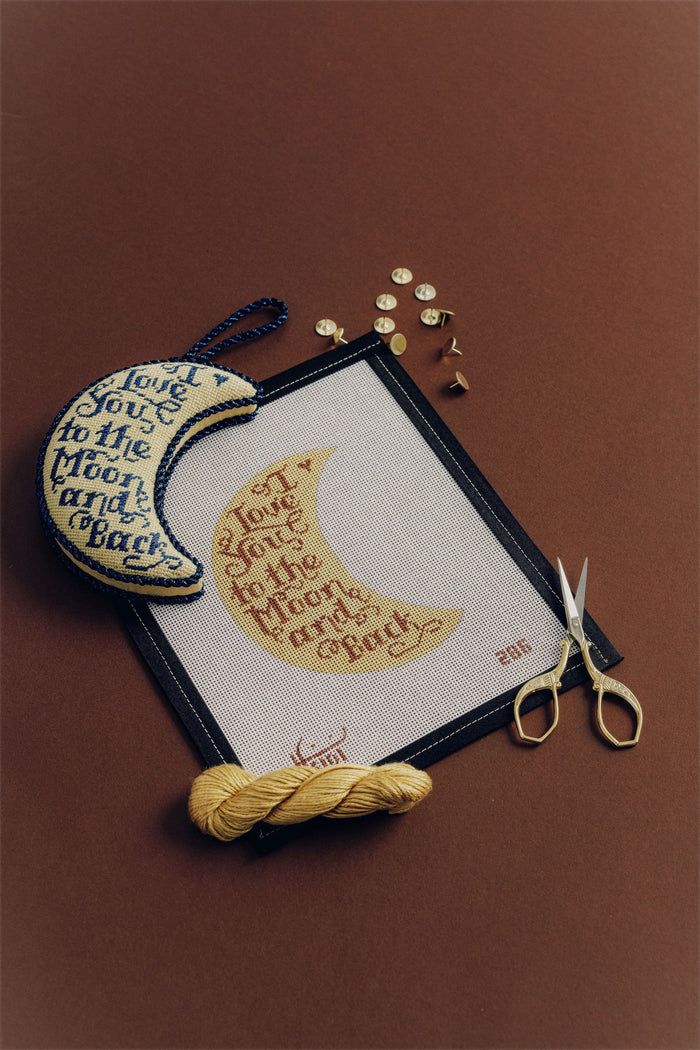 I
Love
You
to the
Moon
and
Back
I
Love
You
to the
Moon
and
Back
286